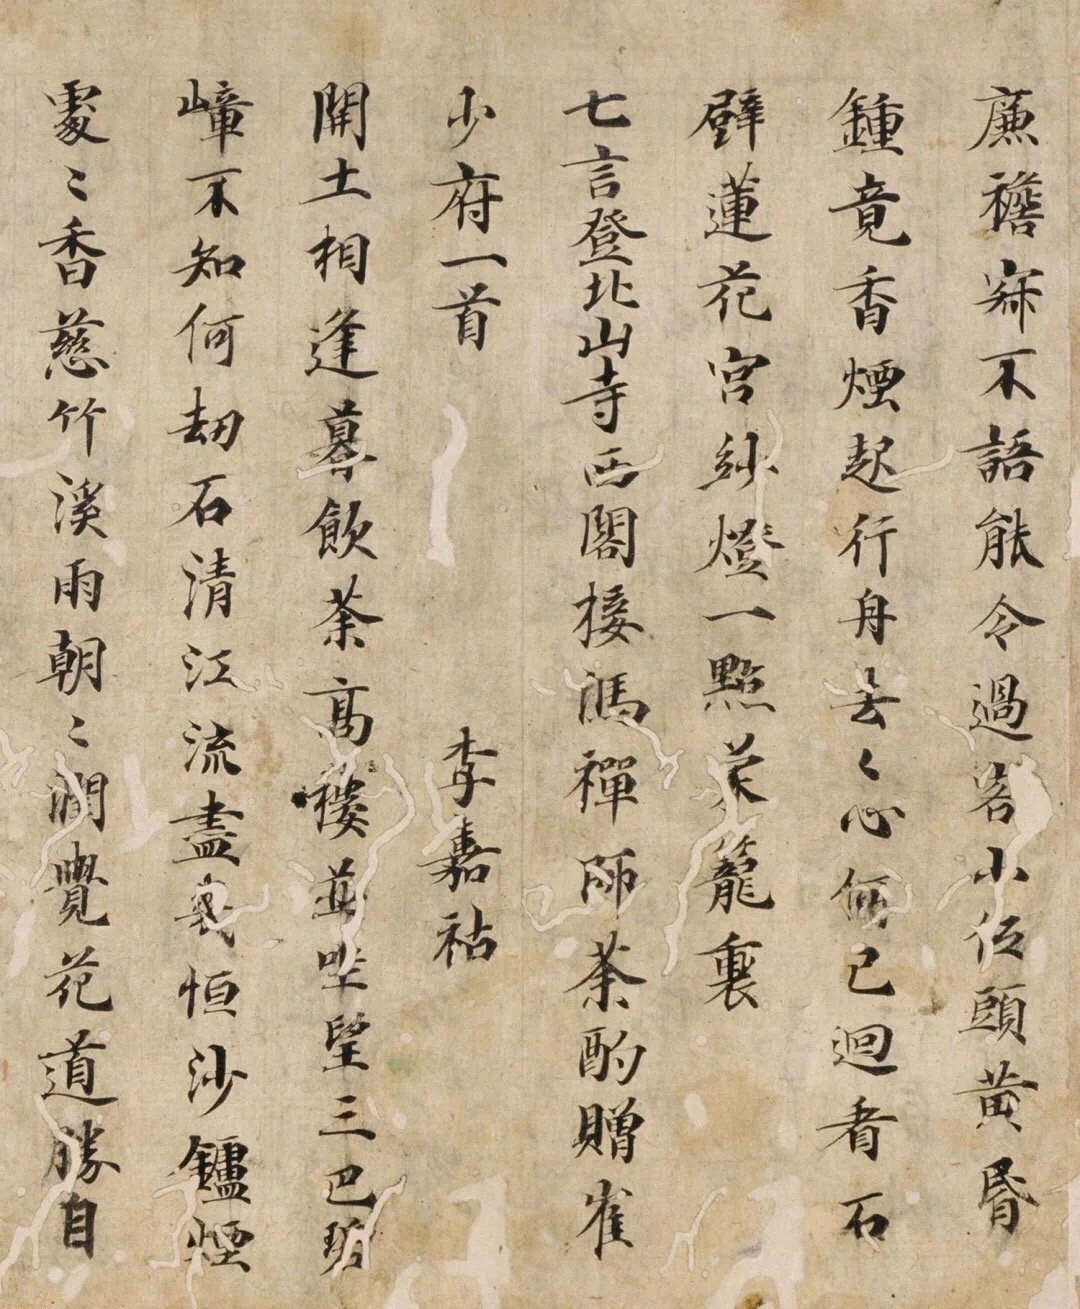 廉襜寂不語能令過客小低頭黃昏
鍾竟香煙起行舟去〻心何已迴看石
壁蓮花宮紗燈一點菜籠裏
七言登北山寺西閣樓馮禪師茶酌贈崔
少府一首
李嘉祐
開士相逢募飲茶高樓並坐望三巴碧
嶂不知何劫石清江流盡幾恒沙鑪煙
處〻香慈竹溪雨朝〻潤覺花道勝自